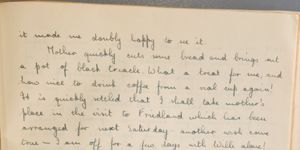 it made me doubly happy to see it.
Mother quickly cuts some bread and brings out
a pot of black treacle. What a treat for me, and
how nice to drink coffee from a real cup again!
It is quickly settled that I shall take mother's
place in the visit to Friedland which has been
arranged for next Saturday - another wish come
true - I am off for a few days with Willi alone!